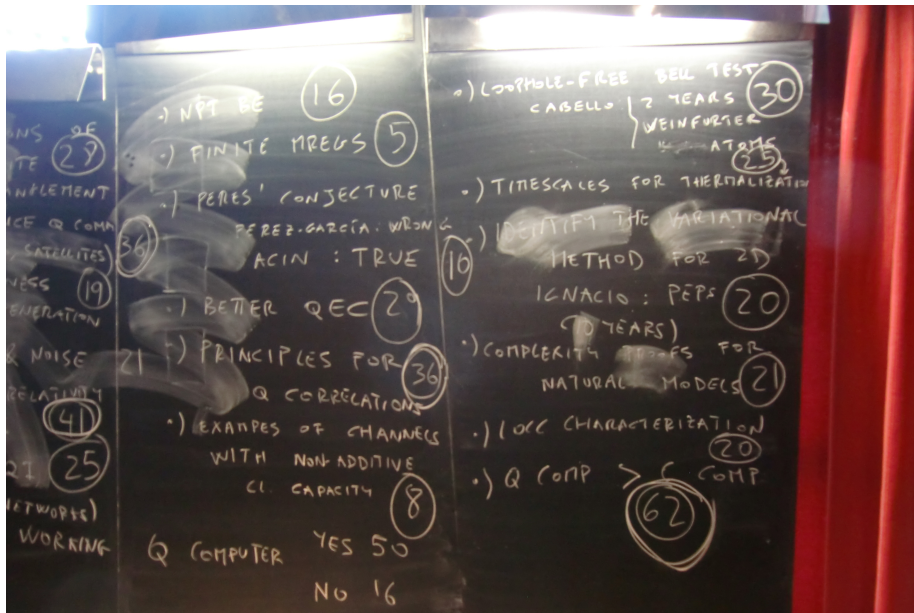 ONS OF
ITE 28
ANGLEMENT
NCE Q COMM
SATELLITES) 36
NESS 19
ENERATION
& NOISE 21
RELATIVITY
41
QI 25
NETWORKS)
WORKING
•) NPT BE 16
•) FINITE MREGS 5
•) PERES' CONJECTURE
PEREZ-GARCÍA: WRONG
ACIN : TRUE
•) BETTER QEC
•) PRINCIPLES FOR
Q CORRELATIONS 36
•) EXAMPES OF CHANNELS
WITH NON-ADDITIVE
CL. CAPACITY 8
Q COMPUTER YES 50
NO 16
•) LOOPHOLE-FREE BELL TEST 30
CABELLO 2 YEARS
WEINFURTER
ATOMS
25
•) TIMESCALES FOR THERMALIZATION
•) IDENTIFY THE VARIATIONAL
16 METHOD FOR 2D
IGNACIO : PEPS 20
(10 YEARS)
•) COMPLEXITY PROOFS FOR
NATURAL MODELS 21
•) LOCC CHARACTERIZATION
20
•) Q COMP > C COMP
62